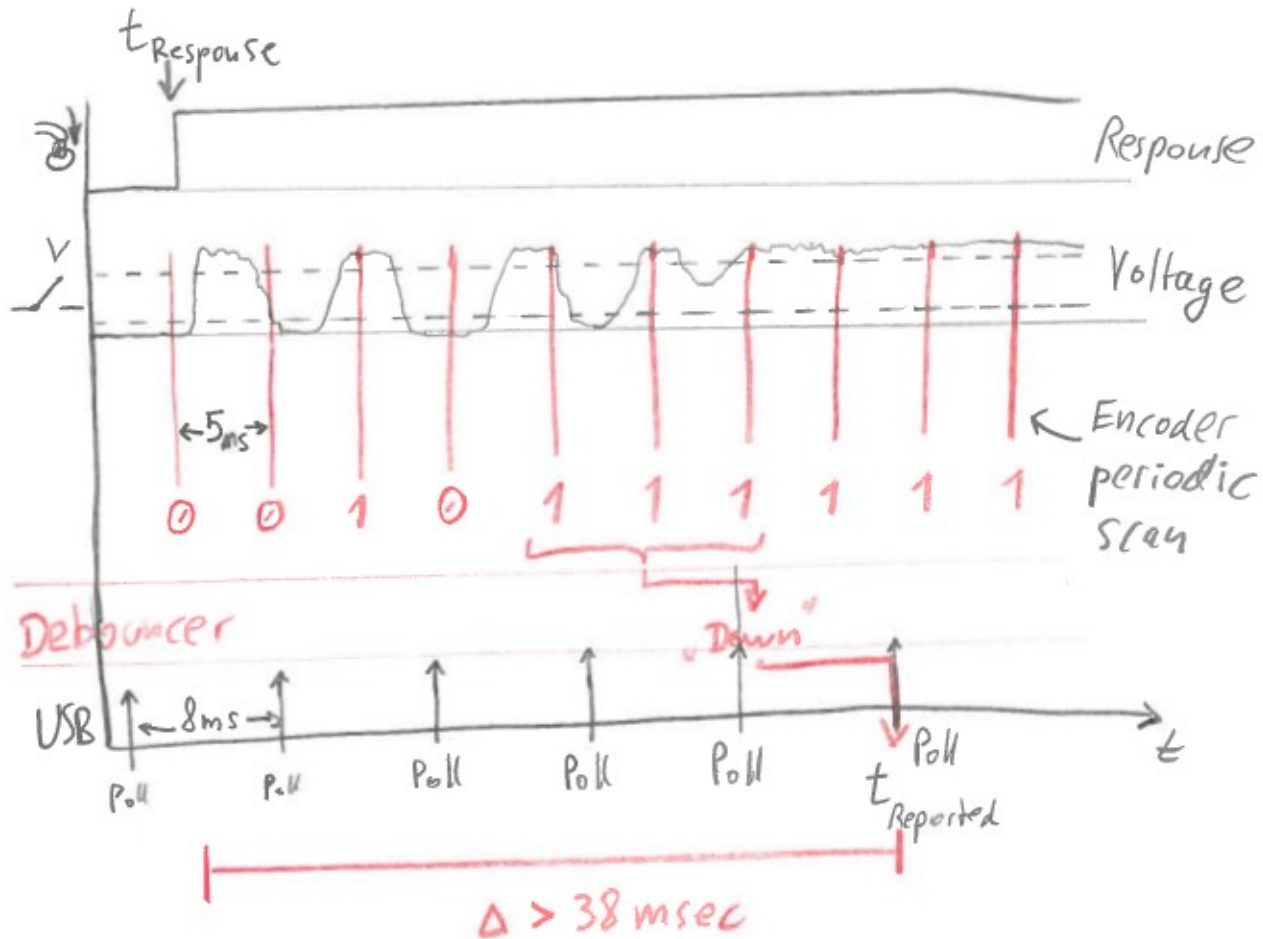 tResponse
Response
V
Voltage
5ms
Encoder
periodic
scan
0 0 1 0 1 1 1 1 1 1
Debouncer
„Down“
USB
8ms
Poll Poll Poll Poll Poll Poll
t
tReported
Δ > 38 msec